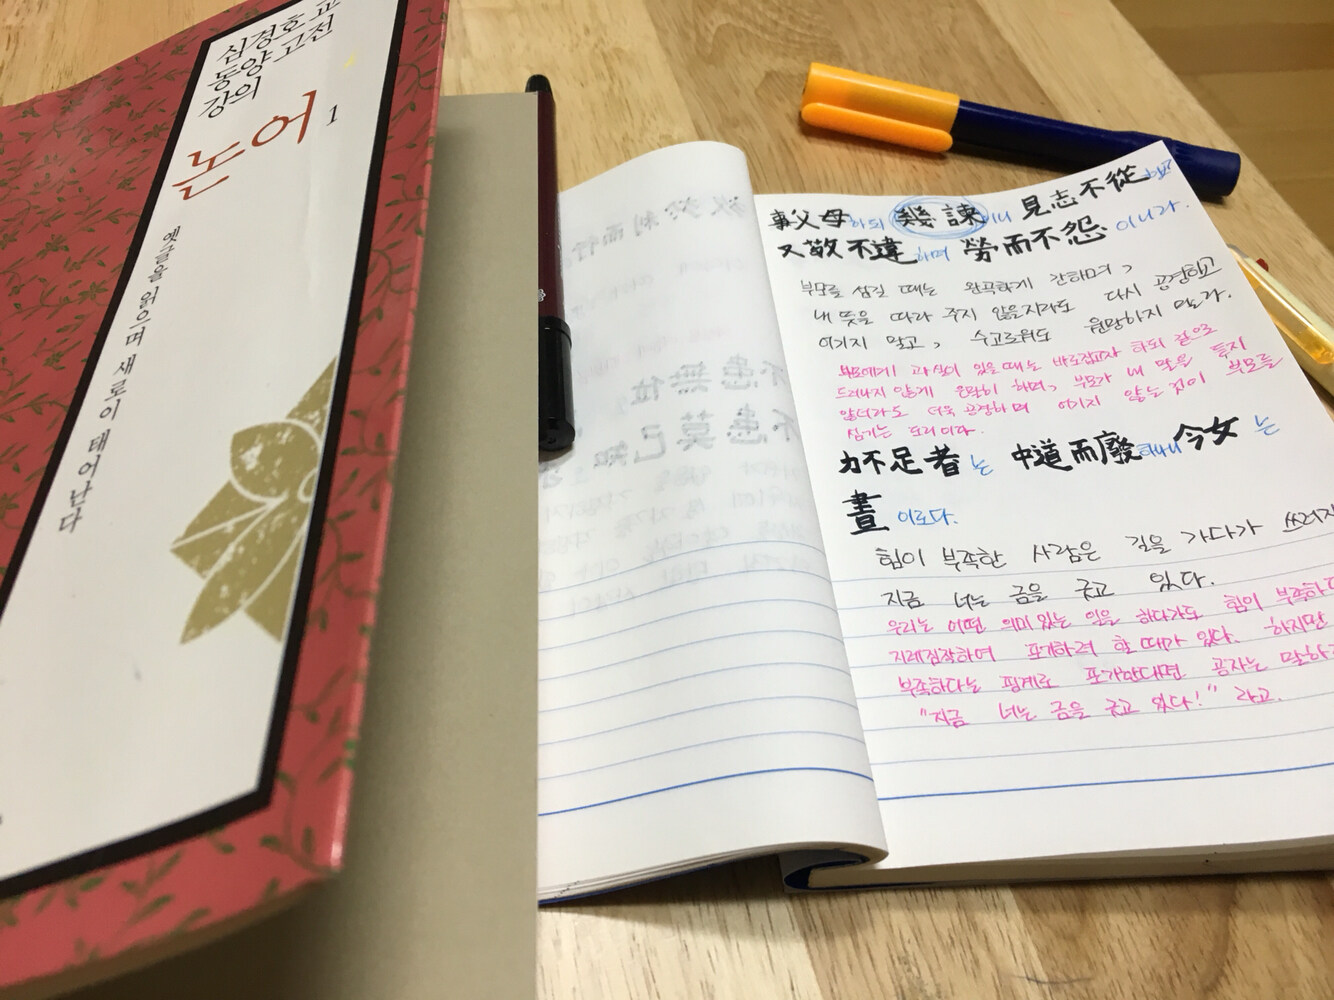 심경호 교
동양 고전
강의
논어 1
옛글을 읽으며 새로이 태어난다
事父母하되 幾諫이니 見志不從하고
又敬不違하며 勞而不怨이니라.
부모를 섬길 때는 완곡하게 간하며,
내 뜻을 따라 주지 않을지라도 다시 공경하고
어기지 말고, 수고로워도 원망하지 말라.
부모에게 과실이 있을 때는 바로잡고자 하되 겉으로
드러나지 않게 은환히 하며, 부모가 내 말을 듣지
않더라도 더욱 공경하며 어기지 않는 것이 부모를
섬기는 도리이다.
力不足者는 中道而廢하나니 今女는
畫이로다.
힘이 부족한 사람은 길을 가다가 쓰러지
지금 너는 금을 긋고 있다.
우리는 어떤 의미있는 일을 하다가도 힘이 부족하다
지레짐작하여 포기하려 할 때가 있다. 하지만
부족하다는 핑계로 포기한다면 공자는 말하
"지금 너는 금을 긋고 있다!" 라고.